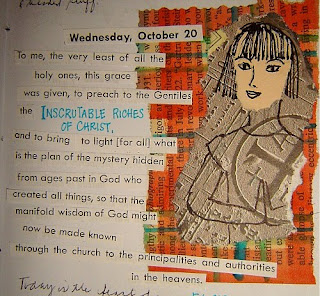 Wednesday, October 20
To me, the very least of all the
holy ones, this grace
was given, to preach to the Gentiles
the INSCRUTABLE RICHES
OF CHRIST,
and to bring to light [for all] what
is the plan of the mystery hidden
from ages past in God who
created all things, so that the
manifold wisdom of God might
now be made known
through the church to the principalities and authorities
in the heavens.
Today is the feast